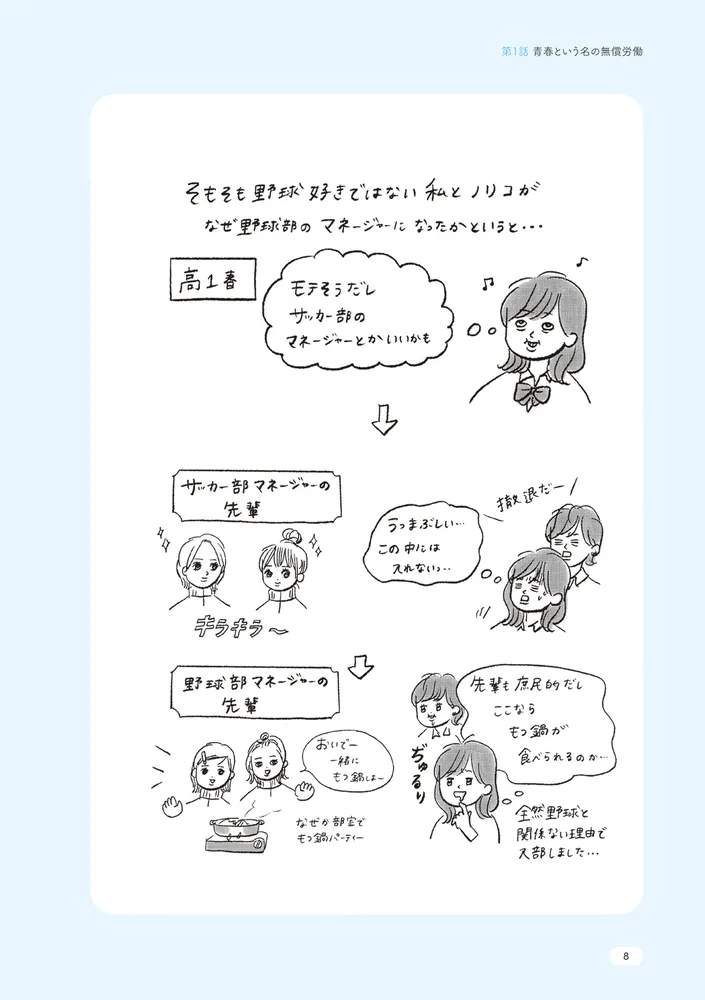 第1話 青春という名の無償労働
そもそも野球好きではない私とノリコが
なぜ野球部のマネージャーになったかというと・・・
高1春
モテそうだし
サッカー部の
マネージャーとかいいかも
サッカー部マネージャーの
先輩
キラキラ〜
撤退だー
うっまぶしい…
この中には
入れないっ…
野球部マネージャーの
先輩
おいでー
一緒に
もつ鍋しよー
なぜか部室で
もつ鍋パーティー
先輩も庶民的だし
ここなら
もつ鍋が
食べられるのか…
ぢゅるり
全然野球と
関係ない理由で
入部しました…
8